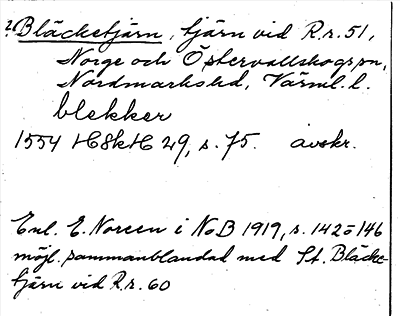 2. Bläcketjärn, tjärn vid R.r. 51,
Norge och Östervallskogs sn,
Nordmarks hd, Värml. l.
blekker
1554 HSkH 29, s. 75. avskr.
Enl. E. Noreen i NoB 1919, s. 142 o 146
möjl. sammanblandad med St. Bläcke-
tjärn vid R.r. 60